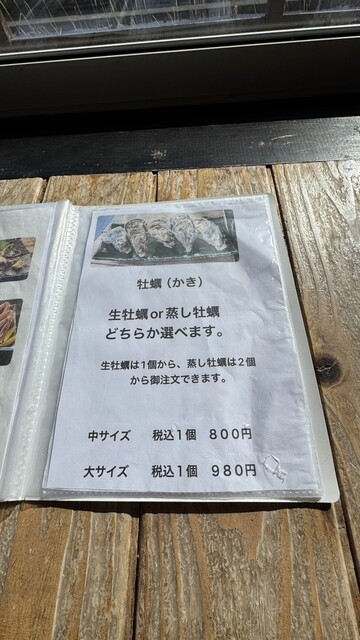 牡蠣（かき）
生牡蠣or蒸し牡蠣
どちらか選べます。
生牡蠣は1個から、蒸し牡蠣は2個
から御注文できます。
中サイズ　税込1個　800円
大サイズ　税込1個　980円